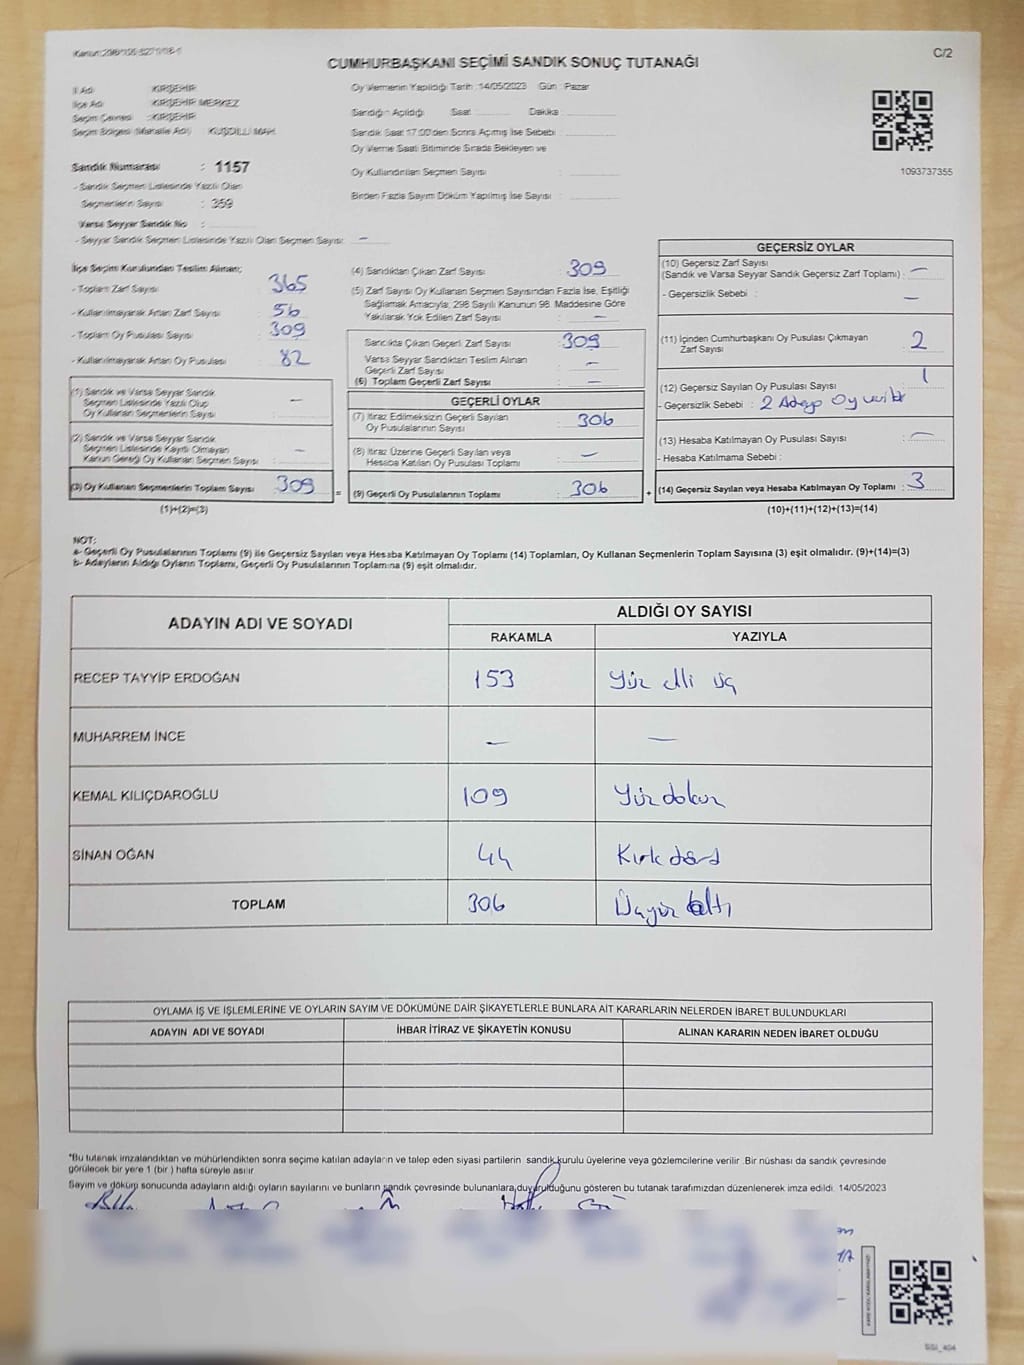 Kanun:298/105-6271/18-1
C/2
CUMHURBAŞKANI SEÇİMİ SANDIK SONUÇ TUTANAĞI
İl Adı : KIRŞEHİR
İlçe Adı : KIRŞEHİR MERKEZ
Seçim Çevresi : KIRŞEHİR
Seçim Bölgesi (Mahalle Adı) : KUŞDİLLİ MAH.
Oy Vermenin Yapıldığı Tarih :14/05/2023 Gün : Pazar
Sandığın Açıldığı Saat: Dakika :
Sandık Saat 17:00'den Sonra Açılmış İse Sebebi :
Oy Verme Saati Bitiminde Sırada Bekleyen ve
Oy Kullandırılan Seçmen Sayısı :
Birden Fazla Sayım Döküm Yapılmış İse Sayısı :
1093737355
Sandık Numarası : 1157
- Sandık Seçmen Listesinde Yazılı Olan
Seçmenlerin Sayısı : 359
Varsa Seyyar Sandık No :
- Seyyar Sandık Seçmen Listesinde Yazılı Olan Seçmen Sayısı: –
İlçe Seçim Kurulundan Teslim Alınan;
- Toplam Zarf Sayısı : 365
- Kullanılmayarak Artan Zarf Sayısı : 56
- Toplam Oy Pusulası Sayısı : 309
- Kullanılmayarak Artan Oy Pusulası : 82
(1) Sandık ve Varsa Seyyar Sandık
Seçmen Listesinde Yazılı Olup
Oy Kullanan Seçmenlerin Sayısı : –
(2) Sandık ve Varsa Seyyar Sandık
Seçmen Listesinde Kayıtlı Olmayan
Kanun Gereği Oy Kullanan Seçmen Sayısı : –
(3) Oy Kullanan Seçmenlerin Toplam Sayısı : 309
(1)+(2)=(3)
(4) Sandıktan Çıkan Zarf Sayısı : 309
(5) Zarf Sayısı Oy Kullanan Seçmen Sayısından Fazla İse, Eşitliği
Sağlamak Amacıyla, 298 Sayılı Kanunun 98. Maddesine Göre
Yakılarak Yok Edilen Zarf Sayısı : –
Sandıkta Çıkan Geçerli Zarf Sayısı : 309
Varsa Seyyar Sandıktan Teslim Alınan
Geçerli Zarf Sayısı : –
(6) Toplam Geçerli Zarf Sayısı : –
GEÇERLİ OYLAR
(7) İtiraz Edilmeksizin Geçerli Sayılan
Oy Pusulalarının Sayısı : 306
(8) İtiraz Üzerine Geçerli Sayılan veya
Hesaba Katılan Oy Pusulası Toplamı : –
= (9) Geçerli Oy Pusulalarının Toplamı : 306 +
GEÇERSİZ OYLAR
(10) Geçersiz Zarf Sayısı
(Sandık ve Varsa Seyyar Sandık Geçersiz Zarf Toplamı) : –
- Geçersizlik Sebebi : –
(11) İçinden Cumhurbaşkanı Oy Pusulası Çıkmayan
Zarf Sayısı : 2
(12) Geçersiz Sayılan Oy Pusulası Sayısı : 1
- Geçersizlik Sebebi : 2 Adaya Oy
(13) Hesaba Katılmayan Oy Pusulası Sayısı : –
- Hesaba Katılmama Sebebi :
(14) Geçersiz Sayılan veya Hesaba Katılmayan Oy Toplamı : 3
(10)+(11)+(12)+(13)=(14)
NOT:
a- Geçerli Oy Pusulalarının Toplamı (9) ile Geçersiz Sayılan veya Hesaba Katılmayan Oy Toplamı (14) Toplamları, Oy Kullanan Seçmenlerin Toplam Sayısına (3) eşit olmalıdır. (9)+(14)=(3)
b- Adayların Aldığı Oyların Toplamı, Geçerli Oy Pusulalarının Toplamına (9) eşit olmalıdır.
ADAYIN ADI VE SOYADI ALDIĞI OY SAYISI
RAKAMLA YAZIYLA
RECEP TAYYİP ERDOĞAN 153 Yüz elli üç
MUHARREM İNCE – –
KEMAL KILIÇDAROĞLU 109 Yüz dokuz
SİNAN OĞAN 44 Kırk dört
TOPLAM 306 Üçyüz altı
OYLAMA İŞ VE İŞLEMLERİNE VE OYLARIN SAYIM VE DÖKÜMÜNE DAİR ŞİKAYETLERLE BUNLARA AİT KARARLARIN NELERDEN İBARET BULUNDUKLARI
ADAYIN ADI VE SOYADI İHBAR İTİRAZ VE ŞİKAYETİN KONUSU ALINAN KARARIN NEDEN İBARET OLDUĞU
*Bu tutanak imzalandıktan ve mühürlendikten sonra seçime katılan adayların ve talep eden siyasi partilerin sandık kurulu üyelerine veya gözlemcilerine verilir .Bir nüshası da sandık çevresinde
görülecek bir yere 1 (bir ) hafta süreyle asılır
Sayım ve döküm sonucunda adayların aldığı oyların sayılarını ve bunların sandık çevresinde bulunanlara duyurulduğunu gösteren bu tutanak tarafımızdan düzenlenerek imza edildi. 14/05/2023
SSI_404